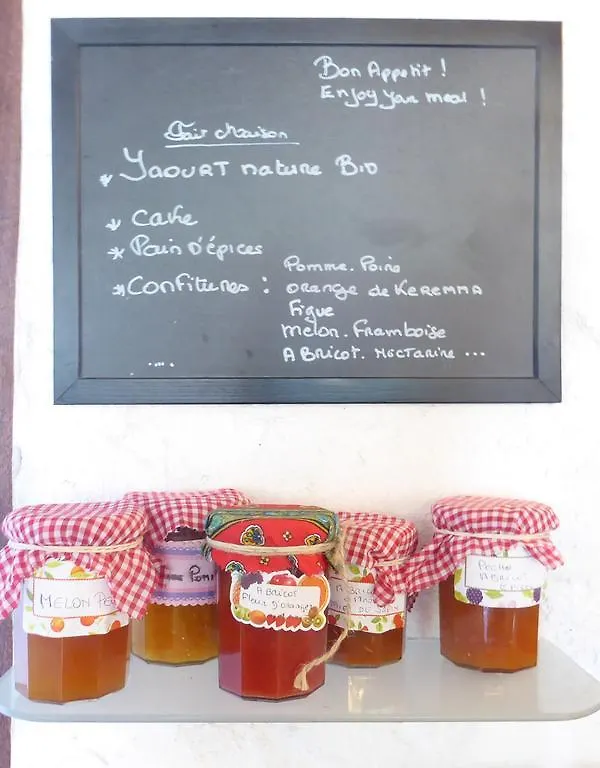 Bon Appetit !
Enjoy your meal !
Fait Maison
* YAOURT nature BIO
* Cake
* Pain D'épices
* Confitures : Pomme. Poire
orange de KEREMMA
Figue
melon. Framboise
ABRICOT. NECTARINE ...
....
MELON
POMM
ABRICOT
Fleur D'oranger
ABRICOT